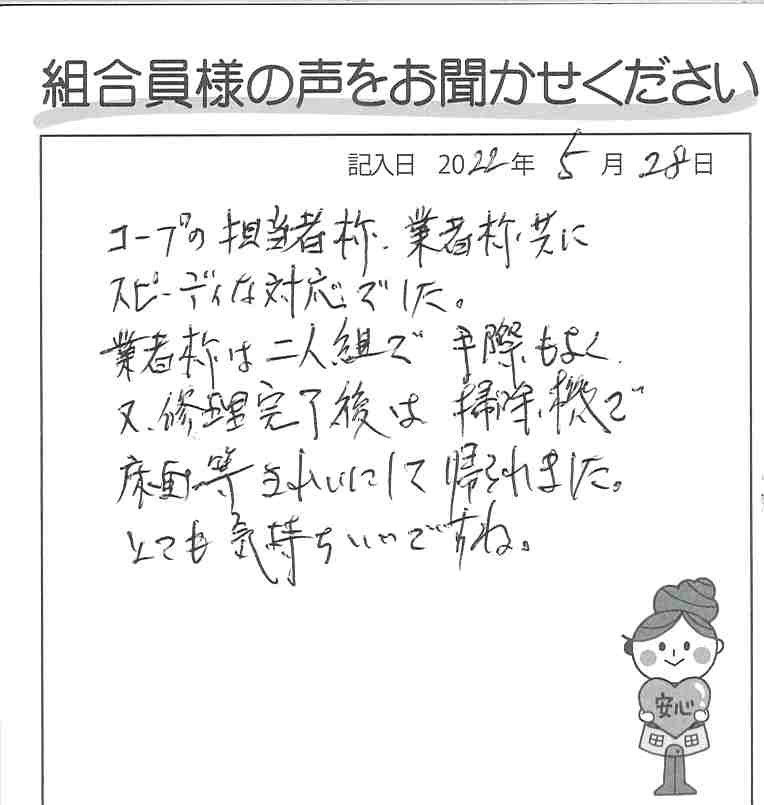 組合員様の声をお聞かせください
記入日 2022年 5月 28日
コープの担当者称、業者称、共に
スピーディな対応でした。
業者称は二人組で手際もよく、
又、修理完了後は掃除機で
床面等きれいにして帰られました。
とても気持ちいいですね。
安心